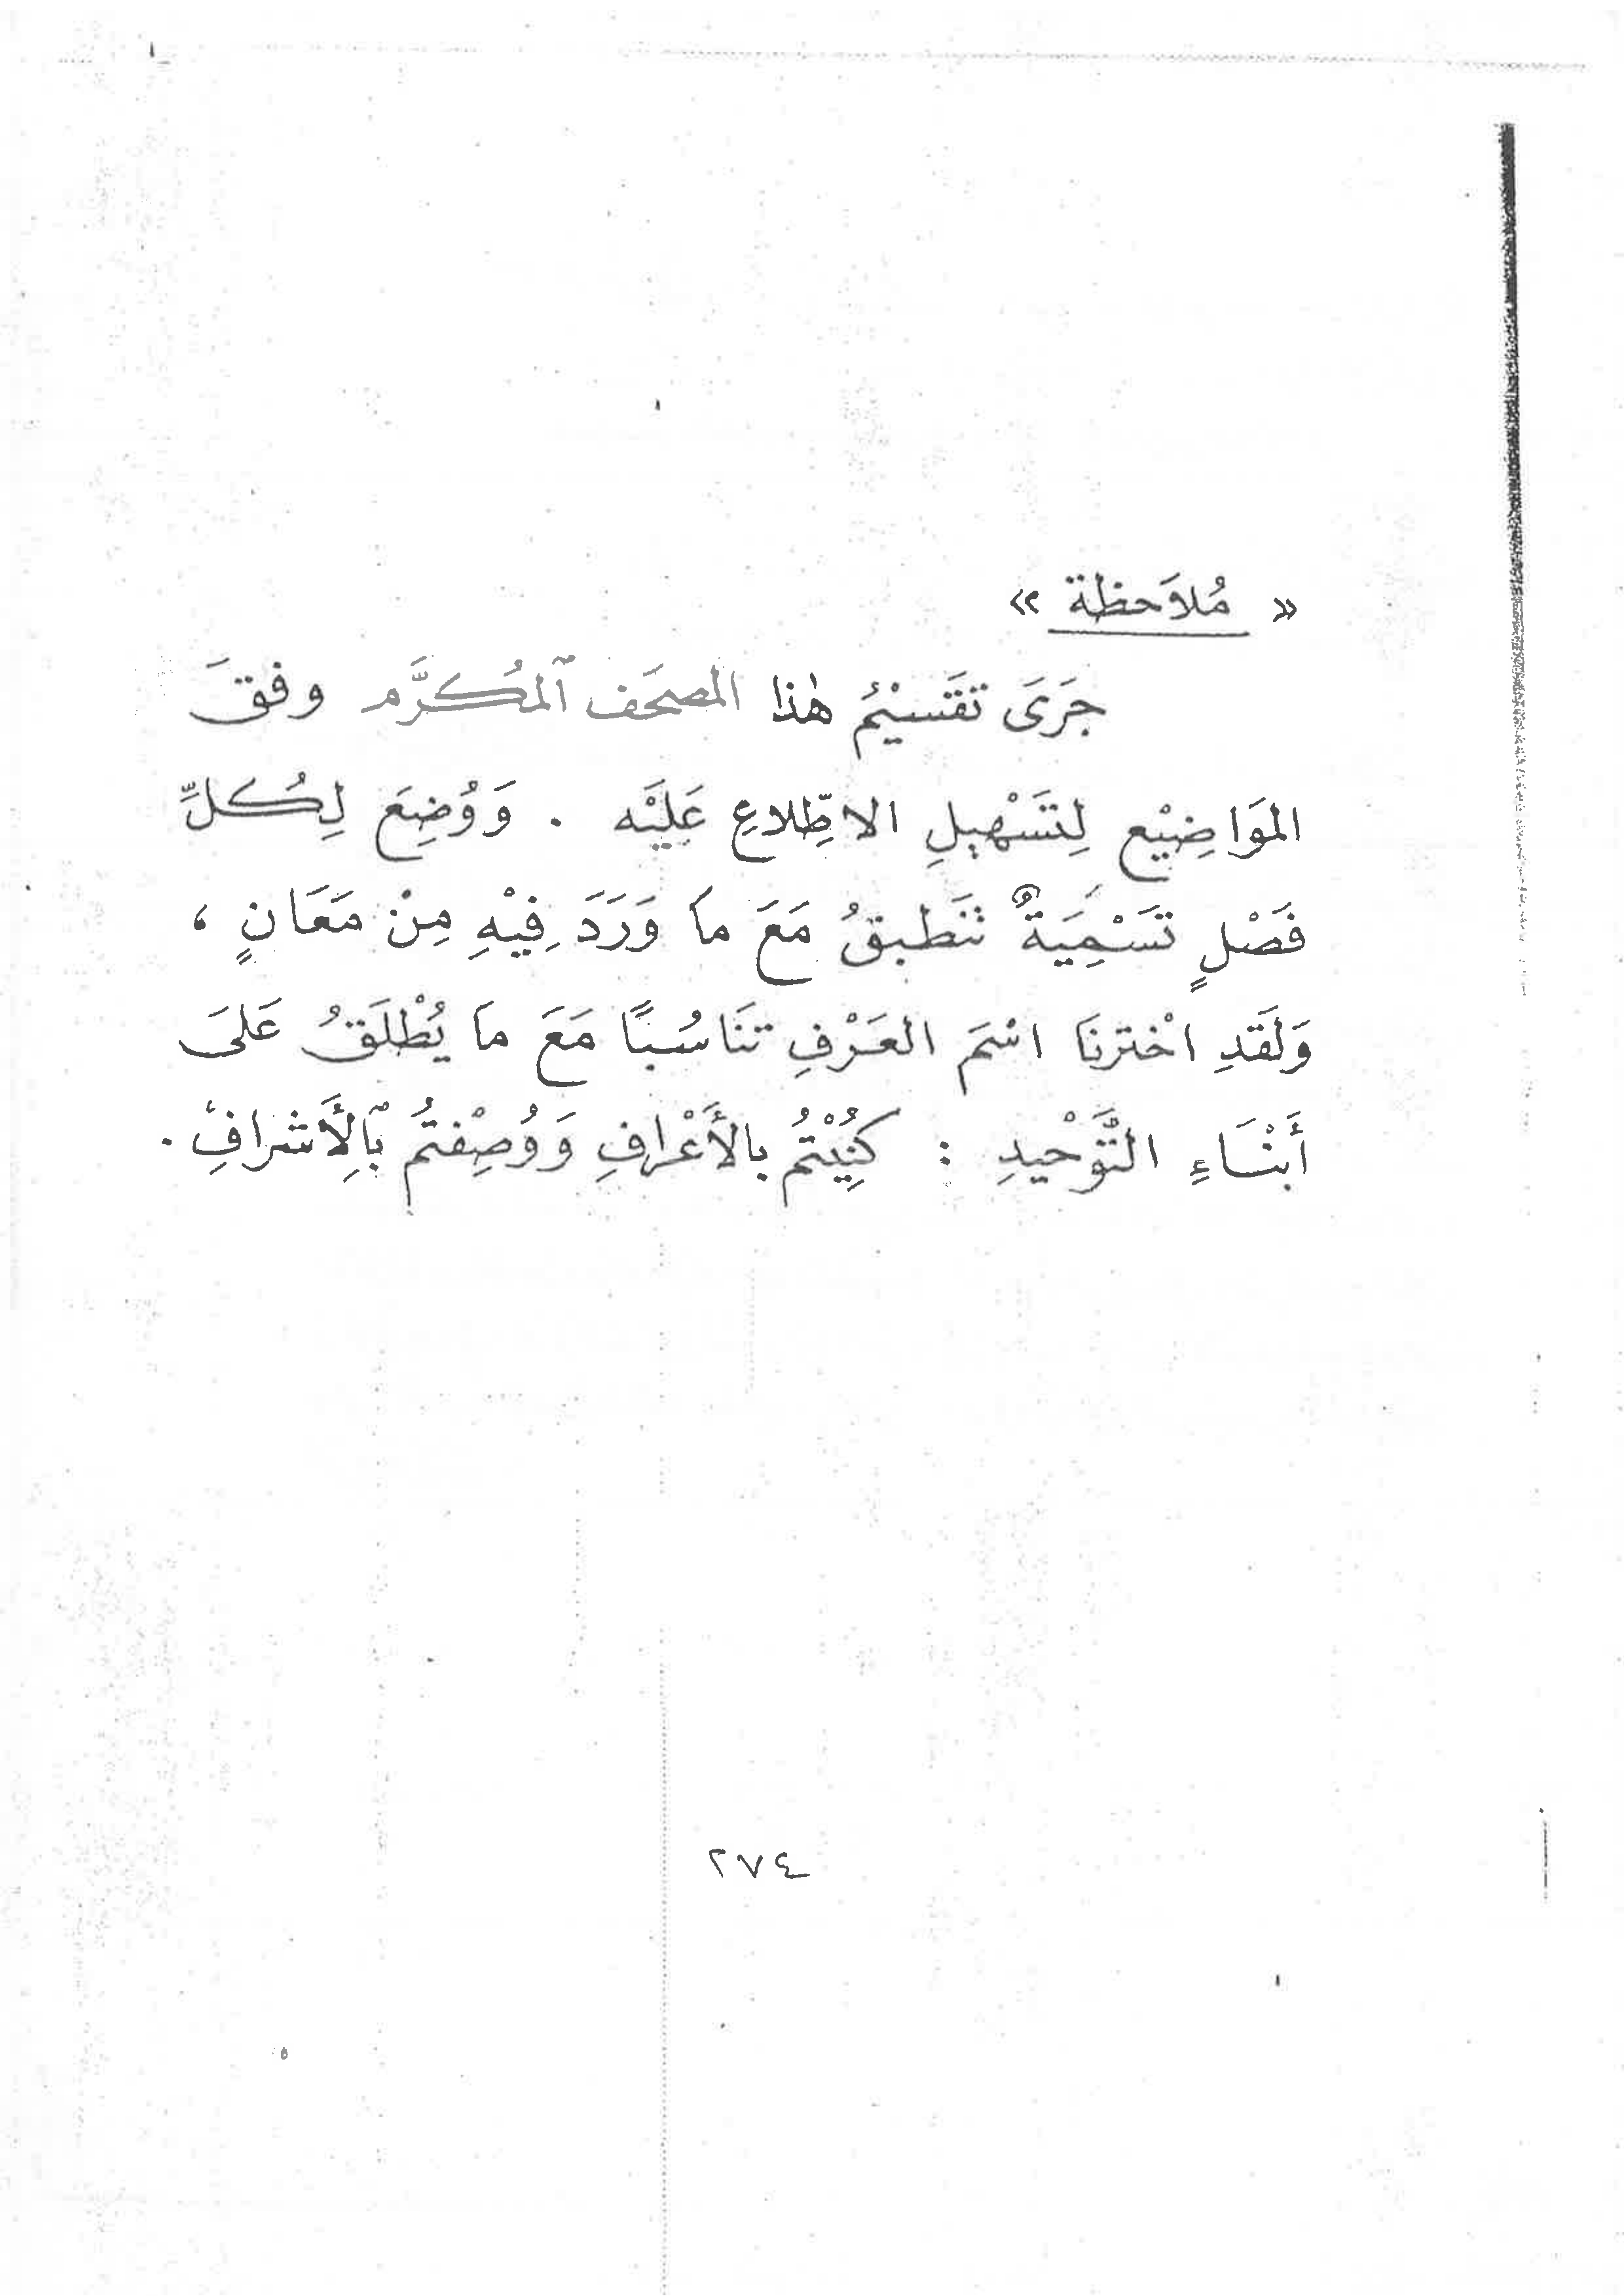 « مُلاَحظة »
جَرَى تقَسيْمُ هٰذا المصحَف ٱلمُكرَّم وفقَ
المَوَاضِيْع لِتَسْهيلِ الاطِّلاعِ عَلَيْه . وَوُضِعَ لِكُلِّ
فَصْلٍ تَسْمِيَةٌ تنَطبقُ مَعَ مَا وَرَدَ فِيْهِ مِنْ مَعَانٍ ،
وَلَقَدِ اخْترنَا اسْمَ العَرْفِ تنَاسُبًا مَعَ مَا يُطْلَقُ عَلىَ
أَبْنَاءِ التَّوْحْيدِ : كُنِيْتُمْ بالأَعْرافِ وَوُصِفْتُمْ بِالأَشرافِ .
٢٧٤